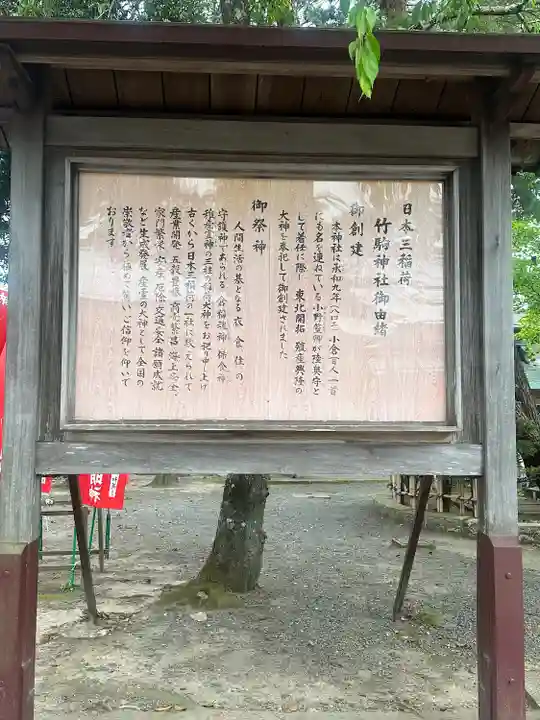 日本三稲荷
竹駒神社御由緒
御創建
本神社は承和九年(八四二)小倉百人一首
にも名を連ねている小野篁卿が陸奥守と
して着任に際し 東北開拓 殖産興隆の
大神を奉祀して御創建されました
御祭神
人間生活の基となる 衣 食 住 の
守護神であられる 倉稲魂神 保食神
稚産霊神の三柱の稲荷大神をお祀り申し上げ
古くから日本三稲荷の一社に数えられて
産業開発 五穀豊穣 商売繁昌 海上安全、
家門繁栄 安産 厄除 交通安全 諸願成就
など生成発展、産霊の大神として全国の
崇敬者から極めて篤いご信仰を仰いで
おります